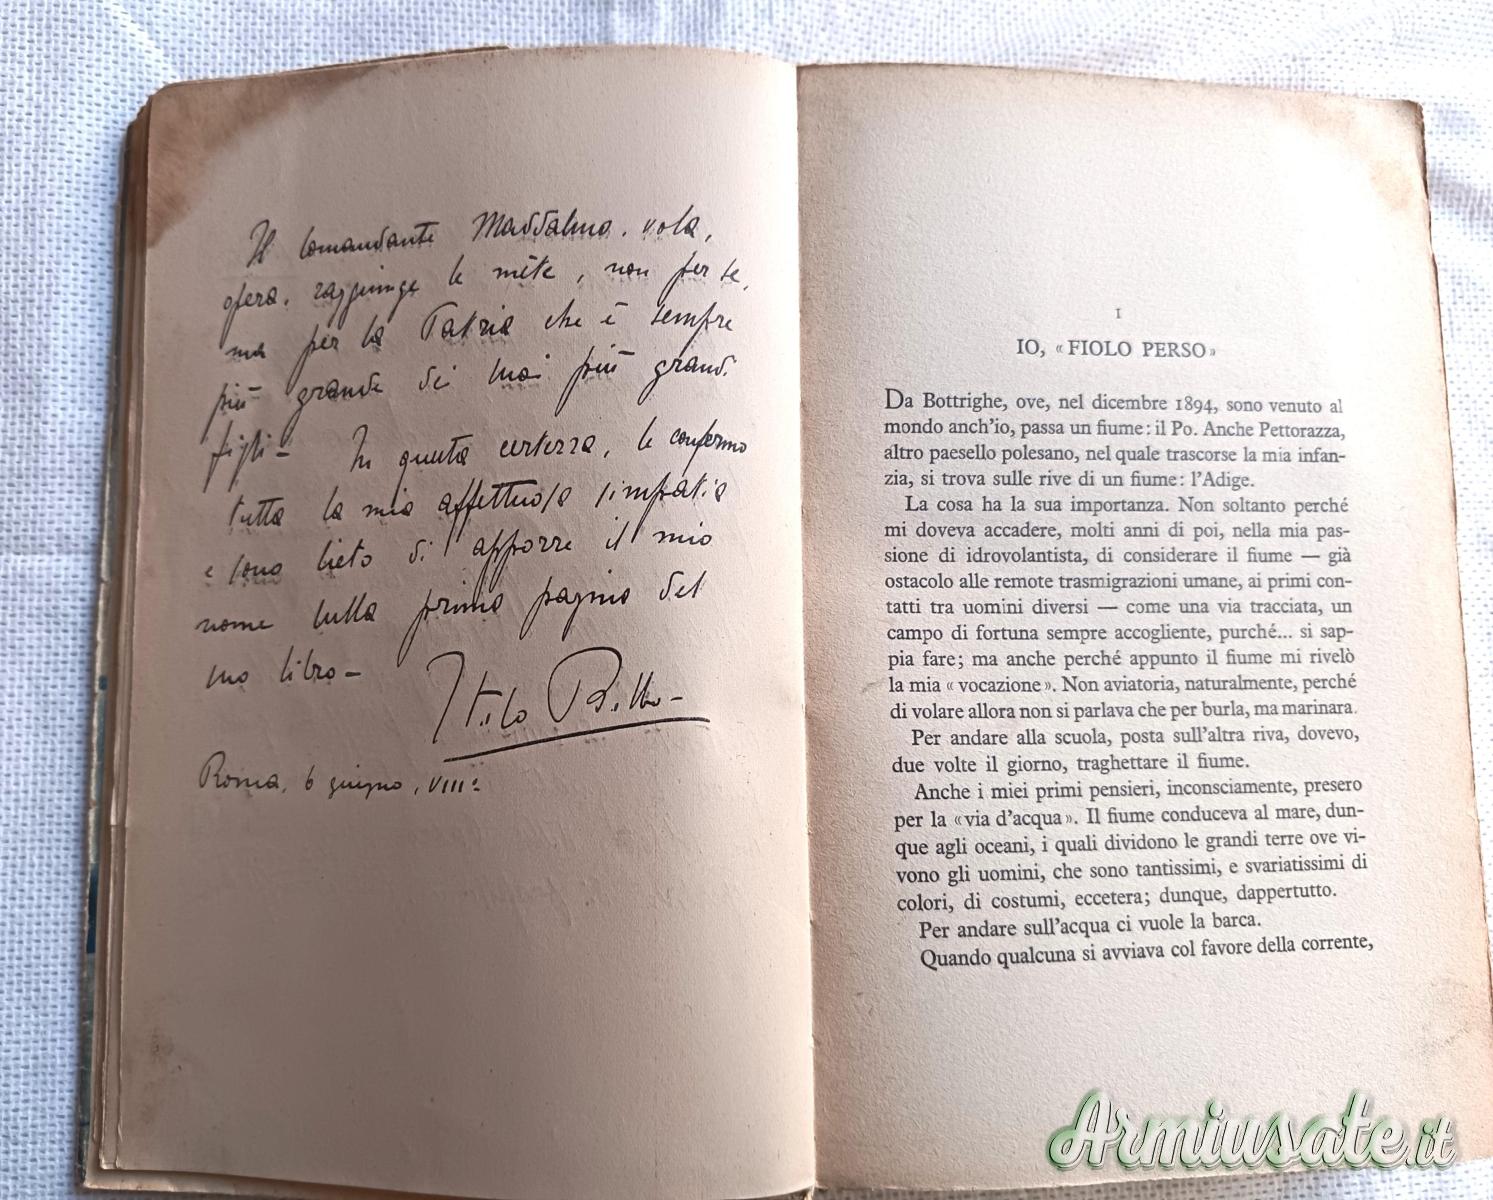 Il Comandante Maddalena, vola,
opera, raggiunge le mète, non per se,
ma per la Patria che è sempre
più grande dei suoi più grandi
figli - In questa certezza, le confermo
tutta la mia affettuosa simpatia
e sono lieto di apporre il mio
nome sulla prima pagina del
suo libro -
Italo Balbo -
Roma, 6 giugno, VIII°
I
IO, « FIOLO PERSO »
Da Bottrighe, ove, nel dicembre 1894, sono venuto al
mondo anch'io, passa un fiume: il Po. Anche Pettorazza,
altro paesello polesano, nel quale trascorse la mia infan-
zia, si trova sulle rive di un fiume: l'Adige.
La cosa ha la sua importanza. Non soltanto perché
mi doveva accadere, molti anni di poi, nella mia pas-
sione di idrovolantista, di considerare il fiume — già
ostacolo alle remote trasmigrazioni umane, ai primi con-
tatti tra uomini diversi — come una via tracciata, un
campo di fortuna sempre accogliente, purché... si sap-
pia fare; ma anche perché appunto il fiume mi rivelò
la mia « vocazione ». Non aviatoria, naturalmente, perché
di volare allora non si parlava che per burla, ma marinara.
Per andare alla scuola, posta sull'altra riva, dovevo,
due volte il giorno, traghettare il fiume.
Anche i miei primi pensieri, inconsciamente, presero
per la « via d'acqua ». Il fiume conduceva al mare, dun-
que agli oceani, i quali dividono le grandi terre ove vi-
vono gli uomini, che sono tantissimi, e svariatissimi di
colori, di costumi, eccetera; dunque, dappertutto.
Per andare sull'acqua ci vuole la barca.
Quando qualcuna si avviava col favore della corrente,
Armiusate.it